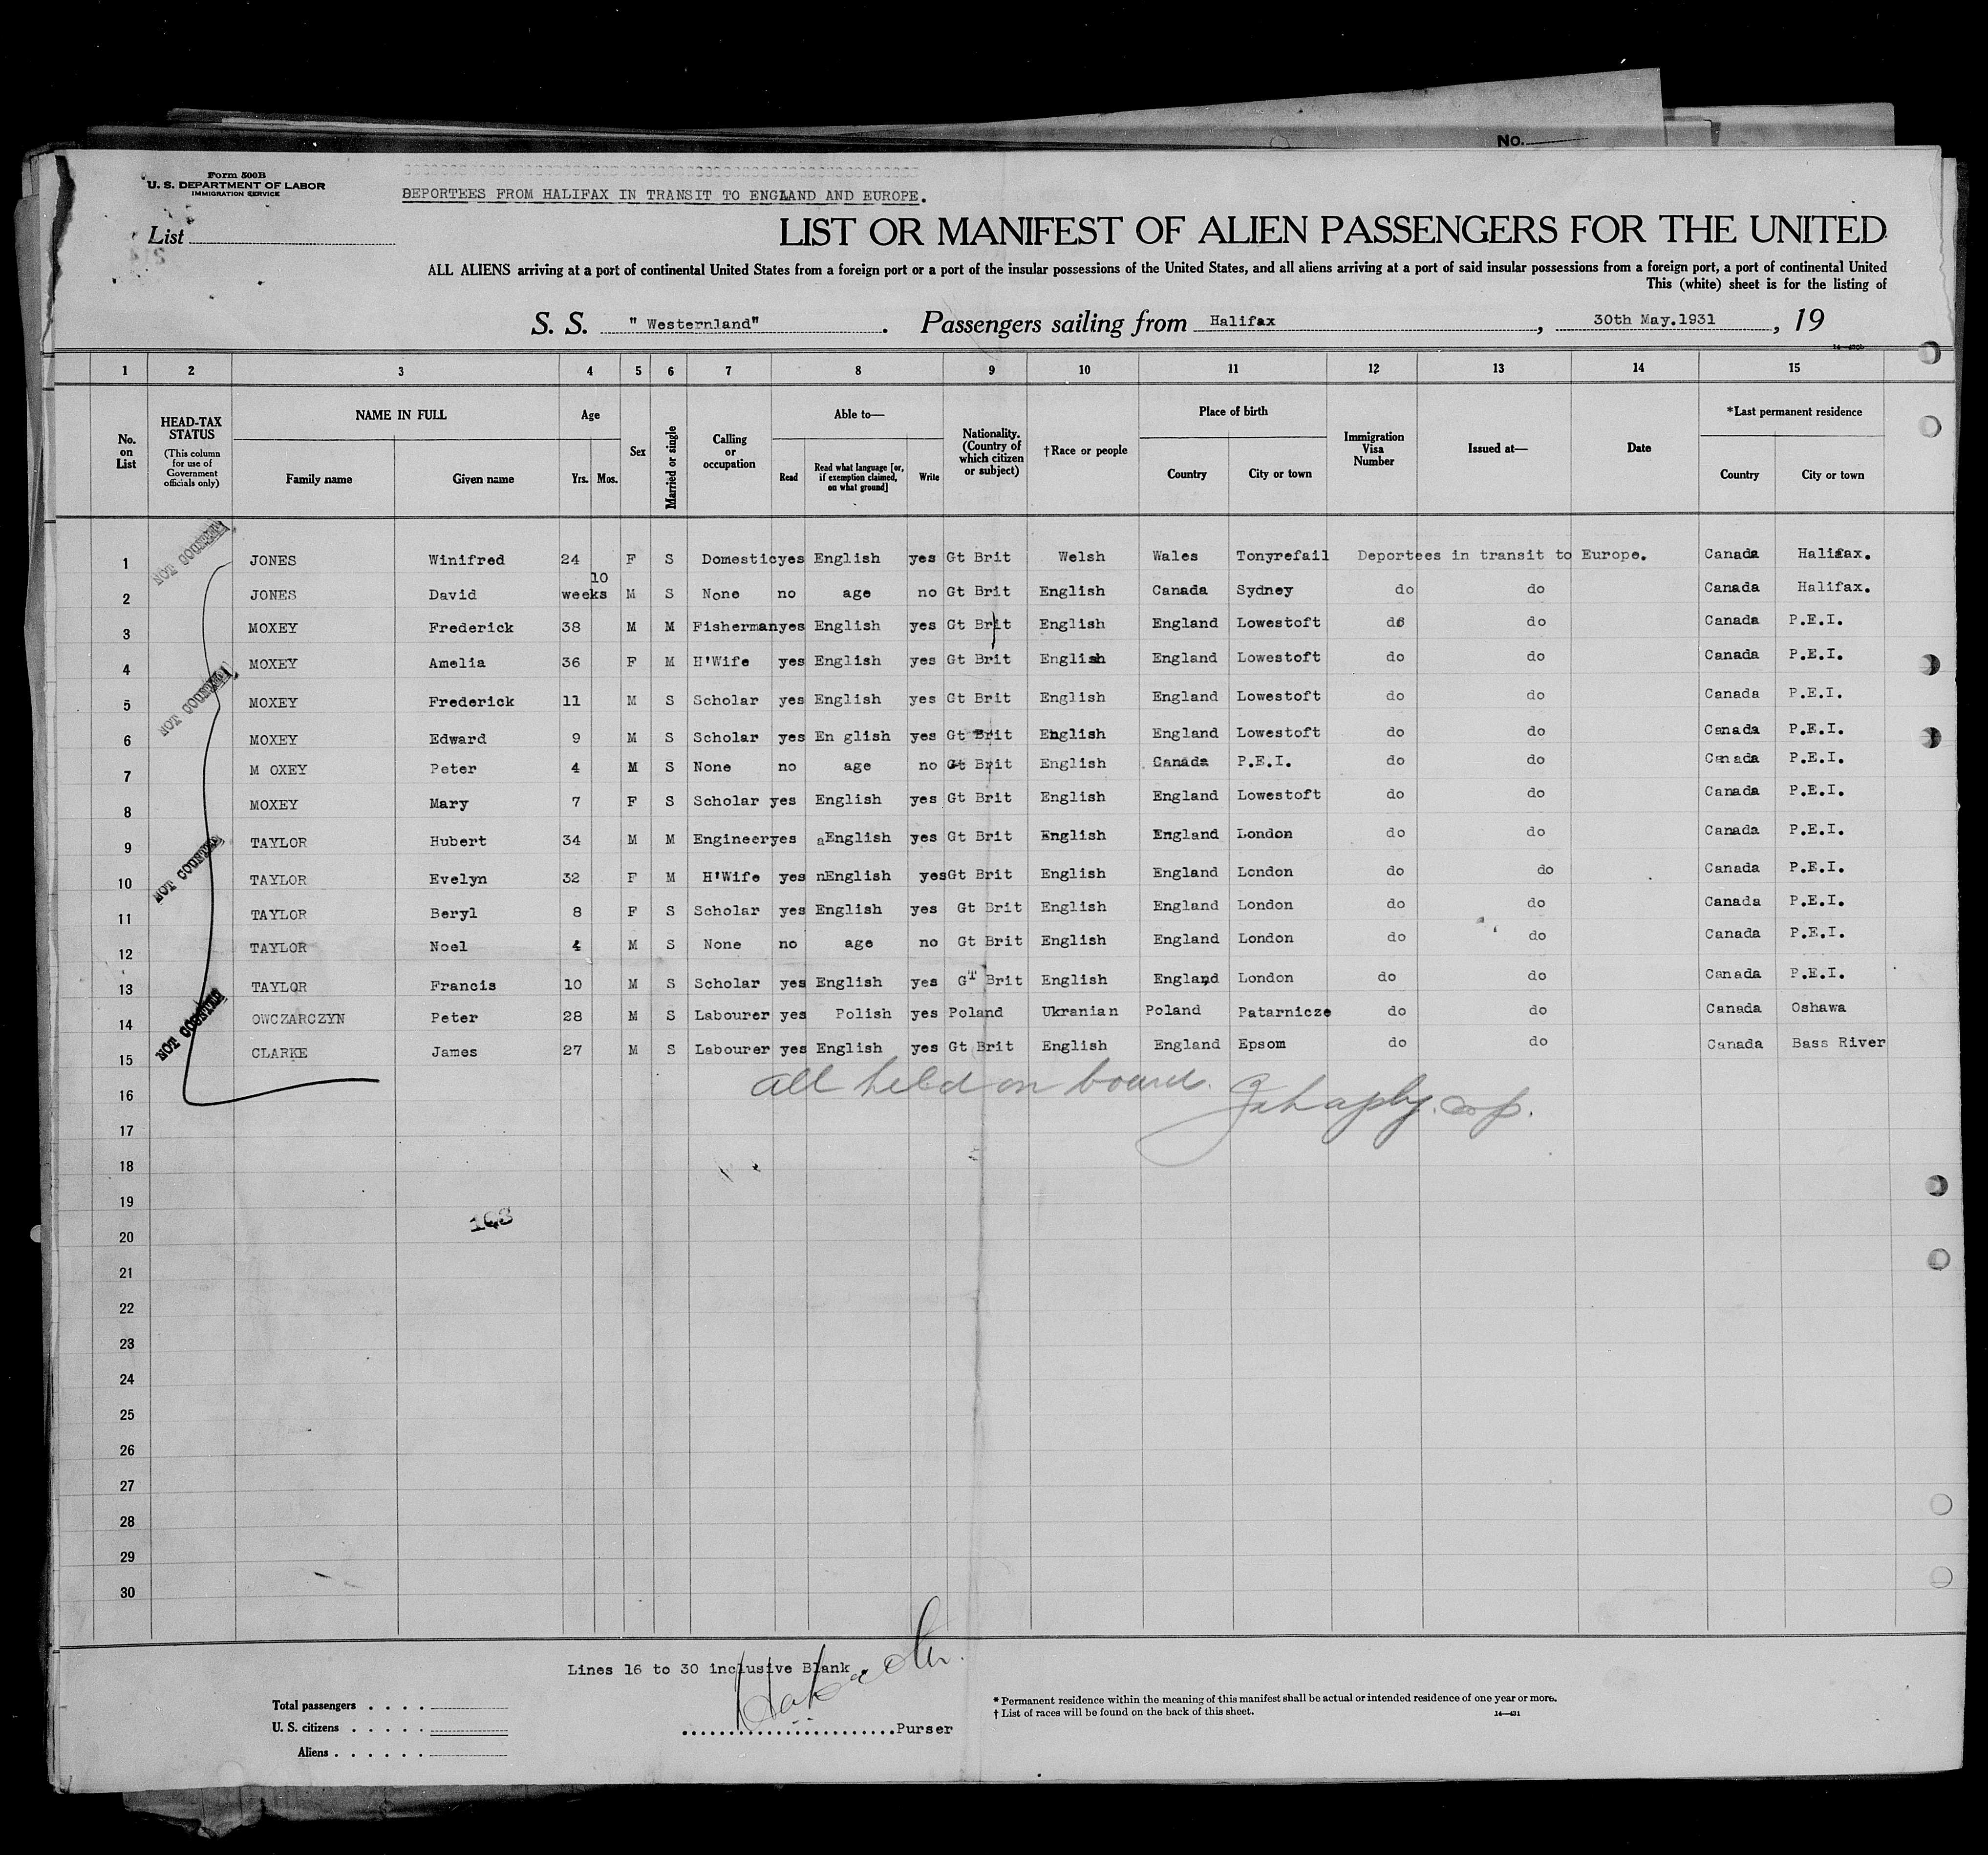 No.
Form 500B
U. S. DEPARTMENT OF LABOR
IMMIGRATION SERVICE
DEPORTEES FROM HALIFAX IN TRANSIT TO ENGLAND AND EUROPE.
List
LIST OR MANIFEST OF ALIEN PASSENGERS FOR THE UNITED
ALL ALIENS arriving at a port of continental United States from a foreign port or a port of the insular possessions of the United States, and all aliens arriving at a port of said insular possessions from a foreign port, a port of continental United
This (white) sheet is for the listing of
S. S. " Westernland" . Passengers sailing from Halifax , 30th May.1931 , 19
1 2 3 4 5 6 7 8 9 10 11 12 13 14 15
No. on List
HEAD-TAX STATUS (This column for use of Government officials only)
NAME IN FULL Family name Given name
Age Yrs. Mos.
Sex
Married or single
Calling or occupation
Able to— Read Read what language [or, if exemption claimed, on what ground] Write
Nationality. (Country of which citizen or subject)
†Race or people
Place of birth Country City or town
Immigration Visa Number
Issued at—
Date
*Last permanent residence Country City or town
NOT COUNTED
1 JONES Winifred 24 F S Domestic yes English yes Gt Brit Welsh Wales Tonyrefail Deportees in transit to Europe. Canada Halifax.
2 JONES David 10 weeks M S None no age no Gt Brit English Canada Sydney do do Canada Halifax.
3 MOXEY Frederick 38 M M Fisherman yes English yes Gt Brit English England Lowestoft do do Canada P.E.I.
4 MOXEY Amelia 36 F M H'Wife yes English yes Gt Brit English England Lowestoft do do Canada P.E.I.
NOT COUNTED
5 MOXEY Frederick 11 M S Scholar yes English yes Gt Brit English England Lowestoft do do Canada P.E.I.
6 MOXEY Edward 9 M S Scholar yes En glish yes Gt Brit English England Lowestoft do do Canada P.E.I.
7 M OXEY Peter 4 M S None no age no Gt Brit English Canada P.E.I. do do Canada P.E.I.
8 MOXEY Mary 7 F S Scholar yes English yes Gt Brit English England Lowestoft do do Canada P.E.I.
9 TAYLOR Hubert 34 M M Engineer yes aEnglish yes Gt Brit English England London do do Canada P.E.I.
NOT COUNTED
10 TAYLOR Evelyn 32 F M H'Wife yes nEnglish yes Gt Brit English England London do do Canada P.E.I.
11 TAYLOR Beryl 8 F S Scholar yes English yes Gt Brit English England London do do Canada P.E.I.
12 TAYLOR Noel 4 M S None no age no Gt Brit English England London do do Canada P.E.I.
13 TAYLOR Francis 10 M S Scholar yes English yes GT Brit English England London do do Canada P.E.I.
NOT COUNTED
14 OWCZARCZYN Peter 28 M S Labourer yes Polish yes Poland Ukranian Poland Patarnicze do do Canada Oshawa
15 CLARKE James 27 M S Labourer yes English yes Gt Brit English England Epsom do do Canada Bass River
16 all held on board.
17
18
19
20
21
22
23
24
25
26
27
28
29
30
Lines 16 to 30 inclusive Blank
Total passengers . . . .
U. S. citizens . . . . .
Aliens . . . . . .
Purser
* Permanent residence within the meaning of this manifest shall be actual or intended residence of one year or more.
† List of races will be found on the back of this sheet.
14—431